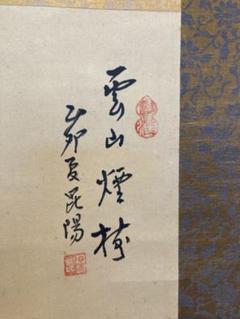 雲山煙樹
乙卯夏昆陽